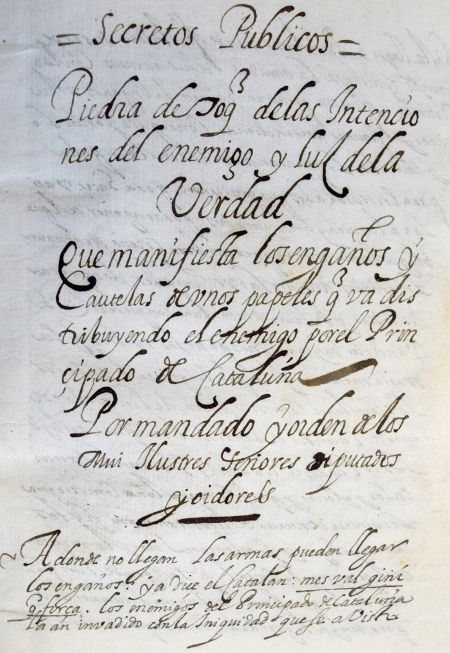 = Secretos Publicos =
Piedra de Toq̃ de las Intencio
nes del enemigo y luz dela
Verdad
Que manifiesta los engaños y
Cautelas de vnos papeles q̃ va dis
tribuyendo el enemigo por el Prin
çipado de Cataluña
Por mandado y orden de los
Mui Ilustres Señores diputados
y oidores
Adonde no llegan las armas pueden llegar
los engaños: ya dice el Catalan: mes val giñi
q̃ força. los enemigos del Principado de Cataluña
la an invadido con la Iniquidad que se a visto